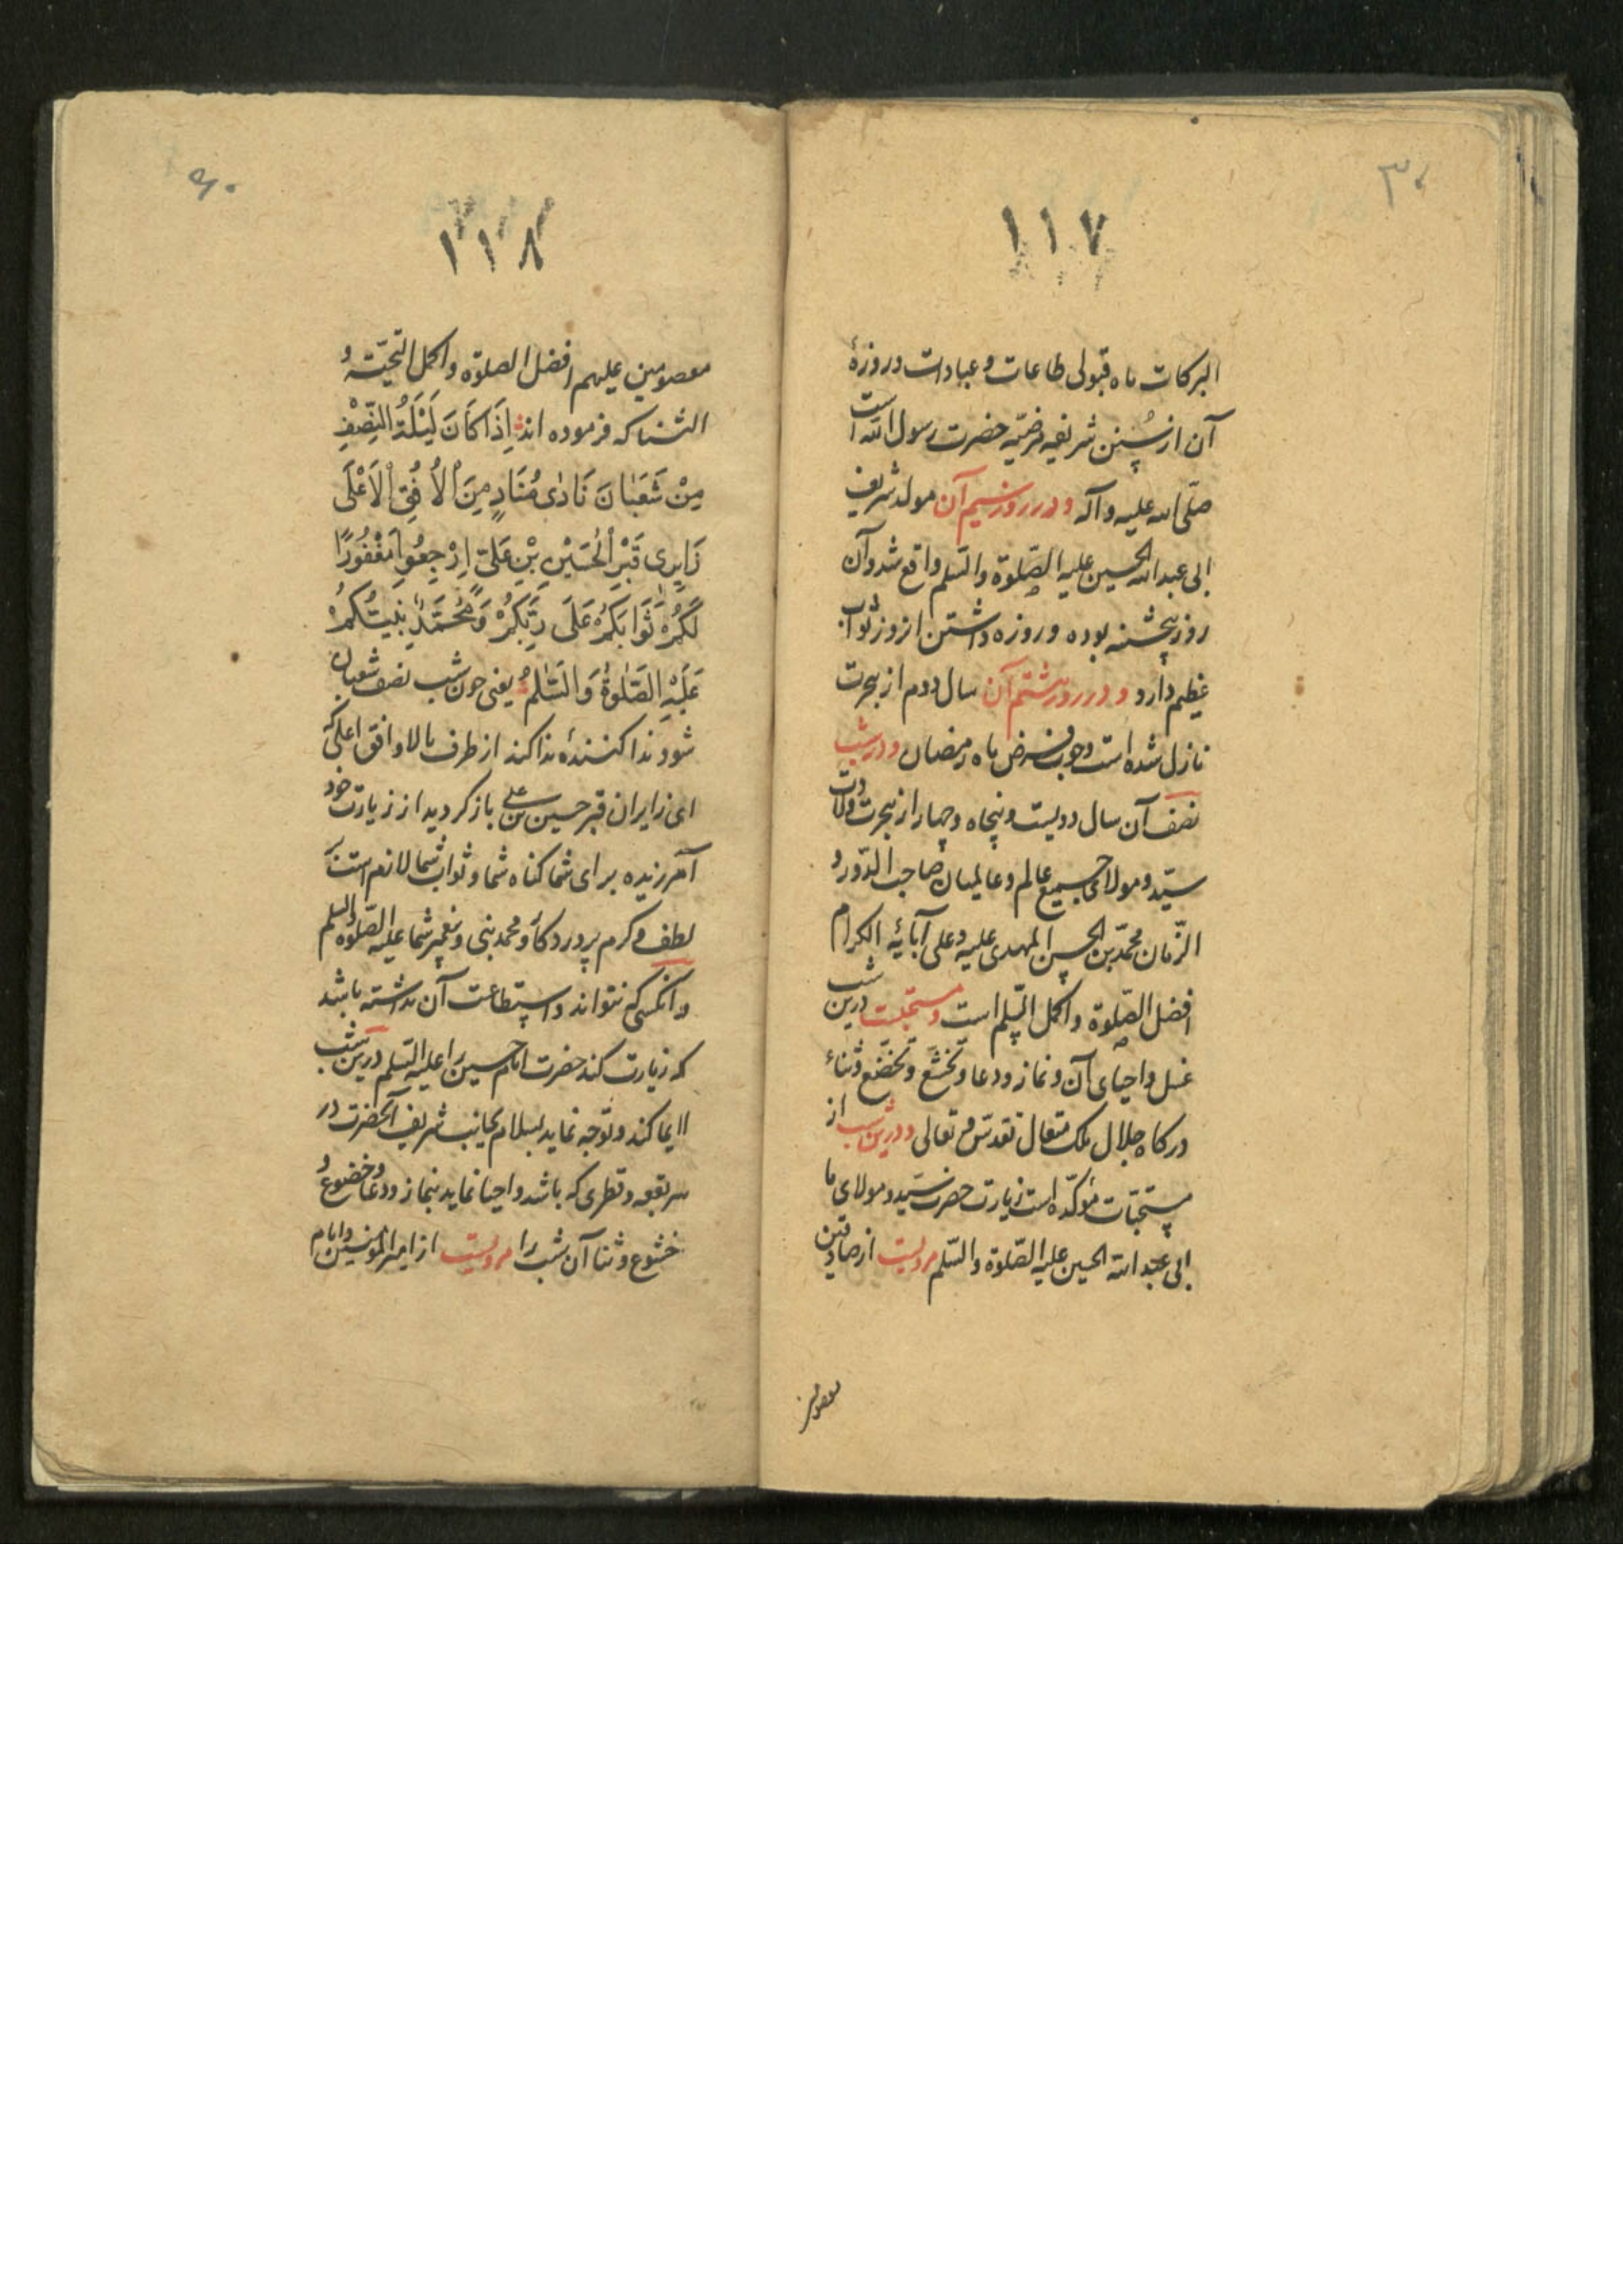 ۱۱۷
البرکات ماه قبولی طاعات و عبادات و روزهٔ
آن از سُنن شریفه مرضیّه حضرت رسول الله است
صلّی الله علیه وآله و در روز سیم آن مولد شریف
ابی عبدالله الحسین علیه الصّلوة والسّلم واقع شد و آن
روز پنجشنبه بوده و روزه داشتن آنروز ثواب
عظیم دارد و در روز هشتم آن سال دوم از هجرت
نازل شده است وجوب فرض ماه رمضان و در شب
نصف آن سال دویست و پنجاه و چهار از هجرت ولادت
سیّد و مولای جمیع عالم و عالمیان صاحب الدّور و
الزّمان محمّد بن الحسن المهدی علیه وعلی آبائه الکرام
افضل الصّلوة واکمل السّلم است و مستحبست درین شب
غسل و احیای آن و نماز و دعا و تخشّع و تخضّع و ثناء
درکاه جلال ملک متعال تقدّس و تعالی و درین شب از
مستحبّات مؤکّده است زیارت حضرت سیّد و مولای ما
ابی عبدالله الحسین علیه الصّلوة والسّلم مرویست از صادقین
معصومین
۱۱۸
معصومین علیهم افضل الصلوة واکمل التحیّة و
الثنا که فرموده اند اِذَا کَانَ لَیْلَةُ النِّصْفِ
مِنْ شَعْبَانَ نَادٰی مُنَادٍ مِنَ الْاُفُقِ الْاَعْلَی
زَایِرِی قَبْرِ الْحُسَیْنِ بْنِ عَلِیّ اِرْجِعُوا مَغْفُورًا
لَکُمْ ثَوَابَکُمْ عَلَی رَبِّکُمْ وَمُحَمَّدٍ نَبِیّکُمْ
عَلَیْهِ الصَّلٰوةُ وَالسَّلٰمُ یعنی چون شب نصف شعبان
شود ندا کنندهٔ ندا کند از طرف بالا و افق اعلی که
ای زایران قبر حسین بن علی باز کردید از زیارت خود
آمرزیده برای شما کناه شما و ثواب شما لازم است بر
لطف و کرم پروردکار و محمد نبی و پیغمبر شما علیه الصّلوة والسلم
و آنکسی که نتواند و استطاعت آن نداشته باشد
که زیارت کند حضرت امام حسین را علیه السّلم درین شب
ایما کند و توجه نماید بسلام بجانب شریف آنحضرت در
هر بقعه و قطری که باشد و احیا نماید بنماز و دعا و خضوع و
خشوع و ثنا آن شب را مرویست از امیرالمؤمنین و امام